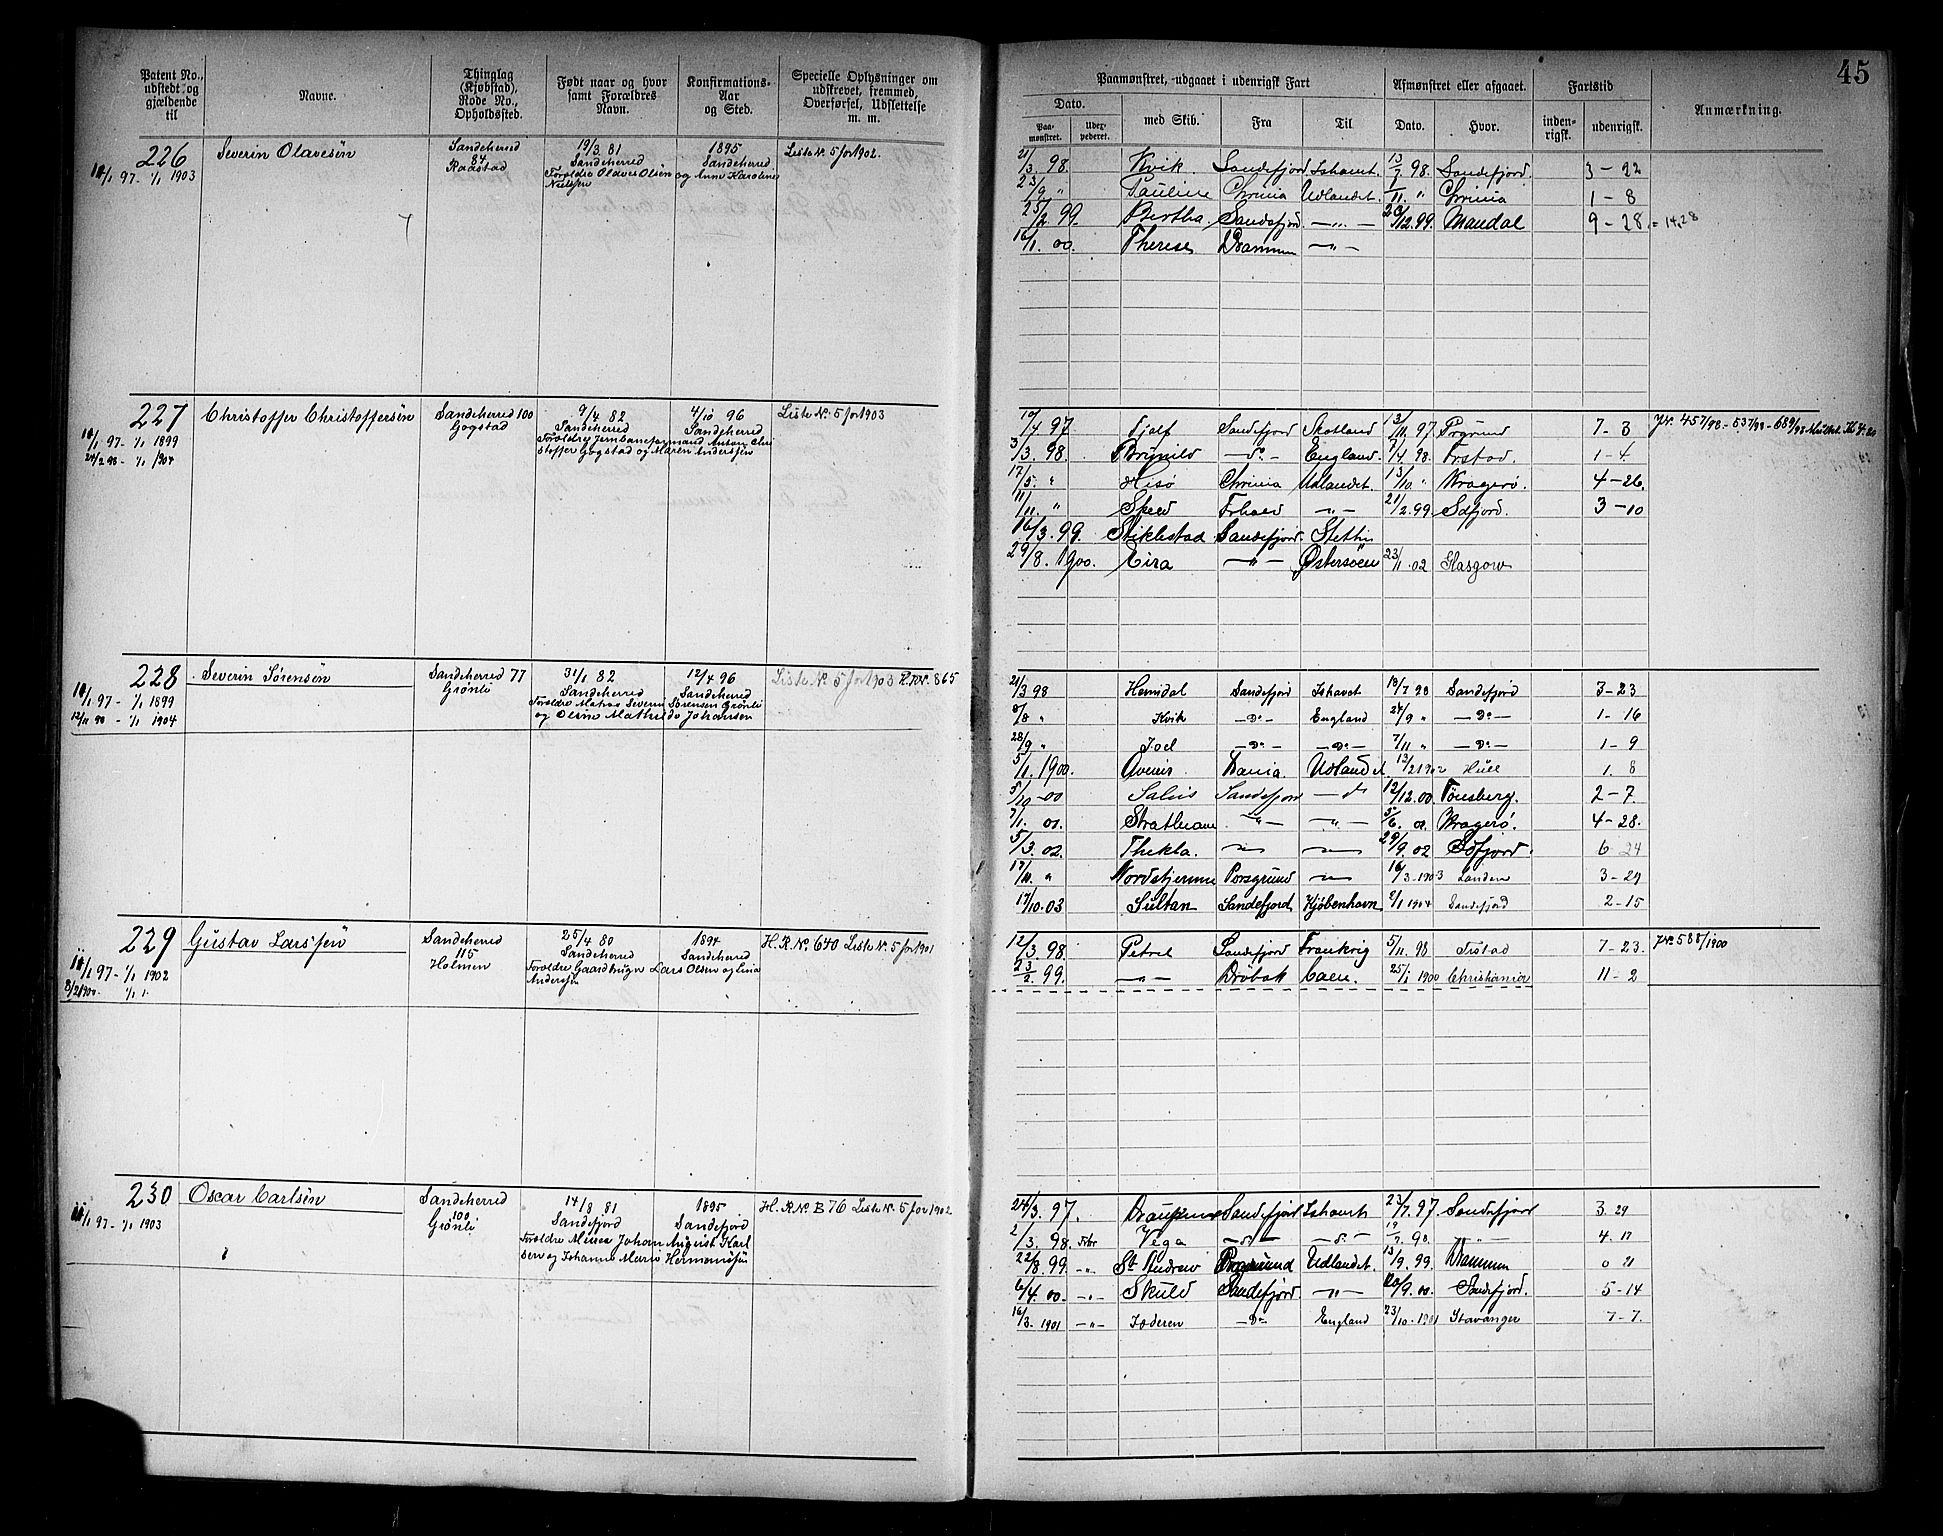 45
Patent No., udstedt og gjældende til
Navne.
Thinglag (Kjøbstad), Rode No., Opholdssted.
Født naar og hvor samt Forældres Navn.
Konfirmations-Aar og Sted.
Specielle Oplysninger om udskrevet, fremmed, Overførsel, Udslettelse m. m.
Paamønstret, udgaaet i udenrigsk Fart
Afmønstret eller afgaaet.
Fartstid
Anmærkning.
Dato.
Paa-mønstret.
med Skib.
Fra
Til
Dato.
Hvor.
inden-rigsk.
udenrigsk.
226 Severin Olavesön Sandeherred 19/3 81 1895 Liste No 5 for 1902.
84 Sandeherred Sandeherred
1/1 97 - 1/1 1903 Raastad Forældre Olaves Olsen og Anne Karoline
Nielsen
21/3 98. Kvik Sandefjord Ishavet 13/7 98. Sandefjord. 3-22
23/9 " Pauline Chrinia Udlandet. 1/11 " Chrinia 1-8
25/2 99. Bertha Sandefjord -"- 20/12 99. Mandal 9-28 = 14,28
16/1. 00. Therese Drammen -"-
227 Christoffer Christoffersen Sandeherred 100 9/4 82 4/10 96 Liste No 5 for 1903
Gogstad Sandeherred Sandeherred
1/1 97 - 1/1 1899 Forældre Jernbaneformand Anton Chri
24/2 98 - 1/1 1904 stoffer Gogstad og Maren Andersen
19/4 97 Fjalf Sandefjord Skotland 13/11. 97 Prgrund 7-3
3/3. 98. Brynild -do- England. 7/4 98. Frstad. 1-4
17/5. " Hisö Chrinia Udlandet. 13/10 " Kragerö. 4-26.
11/11. " Skeed Frhald -"- 21/2.99. Sdfjord. 3-10
16/3. 99. Stiklestad Sandefjord Stettin
29/8. 1900. Eira -"- Østersöen 23/11 02 Glasgow
228 Severin Sørensen Sandeherred 77 31/1 82 12/4 96 Liste No 5 for 1903 H.R.No. 865
Grönli Sandeherred Sandeherred
1/1 97 - 1/1 1899 Forældre Matros Severin Sörensen Grönli
12/11 98 - 1/1 1904 og Oline Mathilde Johansen
21/3 98 Hemdal Sandefjord Ishavet 18/7 98 Sandefjord 3-23
8/8 " Kvik -Do- England 24/9 " -Do- 1-16
28/9 " Joel -Do- -Do- 7/11 " -Do- 1-9
5/1. 1900. Avenir Dania Udlandet 13/2 1900 Hull 1. 8
5/10 -00 Salvis Sandefjord -do 12/12.00. Tönsberg. 2-7.
7/1. 01. Strathearn -"- -"- 5/6. 01. Kragerö. 4-28.
5/3. 02. Thekla. 29/9. 02 Sdfjord. 6 24
17/11. " Nordstjernen Porsgrund 16/3 1903 London 3-29
17/10-03 Sultan Sandefjord Kjöbenhavn 2/1 1904 Sandefjord 2-15
229 Gustav Larssen Sandeherred 25/4 80 1894 H.R.No. 640 Liste No. 5 for 1901
115 Sandeherred Sandeherred
1/1 97 - 1/1 1902 Holmen Forældre Gaardbruger Lars Olsen og Lina
3/2 1900. 1/1 1. Andersen
12/3. 98. Petrel Sandefjord Frankrig 5/11. 98 Frstad 7-23. J.No. 588/1900
23/2. 99. -"- Dröbak Caen. 25/1 1900 Christiania 11-2
230 Oscar Carlsen Sandeherred 14/8 81 1895 H.R.No. B 76 Liste No. 5 for 1902
100 Sandefjord Sandefjord
1/1 97 - 1/1 1903 Grönli Forældre Murer Johan August Karl
sen og Johanne Marie Hermansen
24/3. 97. Draupner Sandefjord Ishavet 23/7. 97 Sandefjord 3. 29
2/3. 98. Vega -do- -do- 19/7. 98. -"- 4. 17
22/8. 99. -"- St Andrew Prsgrund Udlandet. 13/9. 99. Drammen 0 21
6/4. 00. -"- Skuld Sandefjord -"- 20/9. 00. Sandefjord. 5-14
16/3. 1901 -"- Jæderen -Do- England 23/10-1901 Stavanger 7-7.